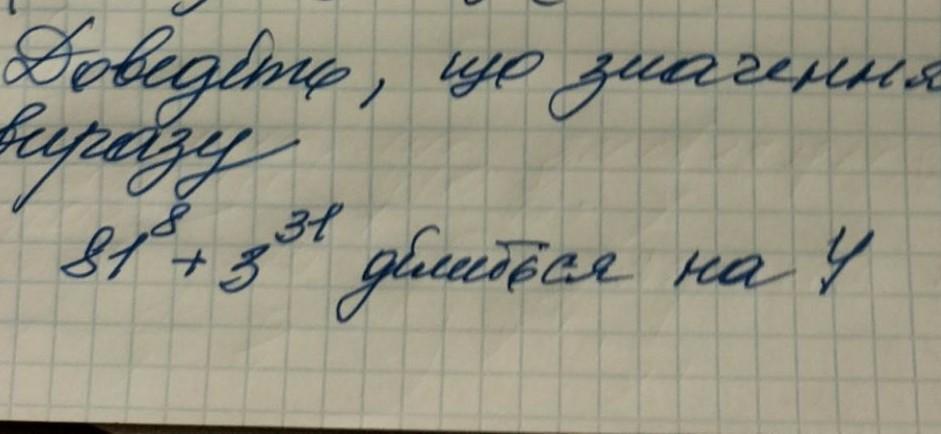 Доведіть, що значення
виразу
81⁸ + 3³¹ ділиться на 4